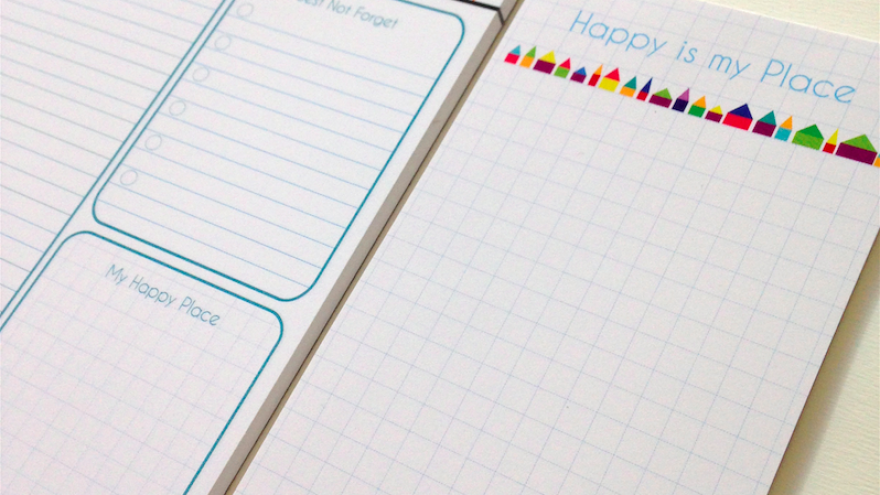 Best Not Forget
My Happy Place
Happy is my Place